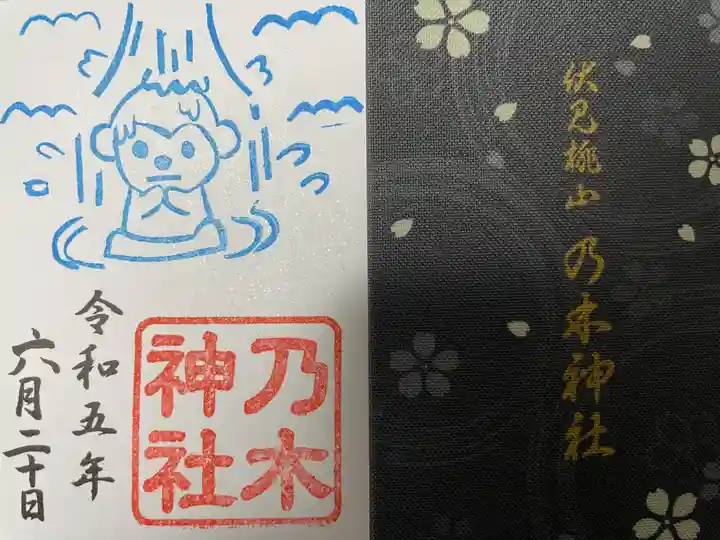 令和五年
六月二十日
乃木
神社
伏見桃山 乃木神社